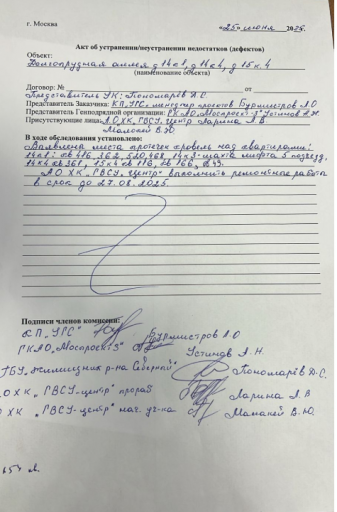 г. Москва «25» июня 2025г.
Акт об устранении/неустранении недостатков (дефектов)
Объект:
Долгопрудная аллея д 14к1, д 14к4, д 15 к. 4
(наименование объекта)
Договор: № от
Представитель УК: Пономарёв Д.С.
Представитель Заказчика: КП „УГС", менеджер проектов Бурмистров А.О
Представитель Генподрядной организации: ГКАО „Моспроект-3" Устинов А.Н.
Присутствующие лица: АО ХК „ГВСУ „Центр" Ларина Л.В
В.Ю
В ходе обследования установлено:
Выявлена места протечек кровель над квартирами:
14к1: кв 416, 362, 520, 468, 14к3-шахта лифта 5 подъезд,
14к4 кв 361, 15к4 кв 116, кв 166,
АО ХК „ГВСУ „Центр" выполнить ремонтные работы
в срок до 27.08.2025.
Подписи членов комиссии:
КП „УГС" Бурмистров А.О
ГКАО „Моспроект-3" Устинов А.Н.
ГБУ „Жилищник р-на Северный" Пономарёв Д.С.
О ХК „ГВСУ-центр" прораб Ларина Л.В
О ХК „ГВСУ-центр" нач. уч-ка В.Ю.